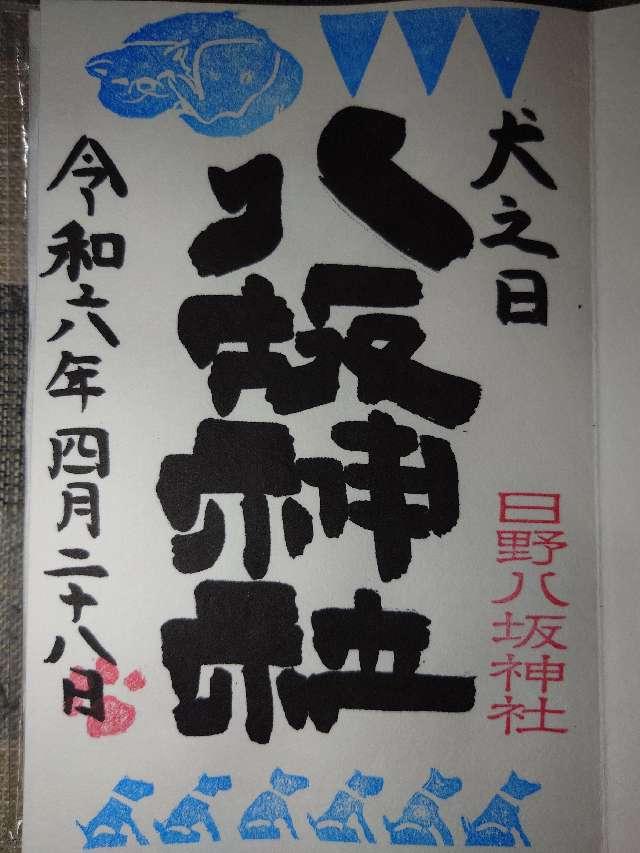 犬之日
日野八坂神社
八坂神社
令和六年四月二十八日